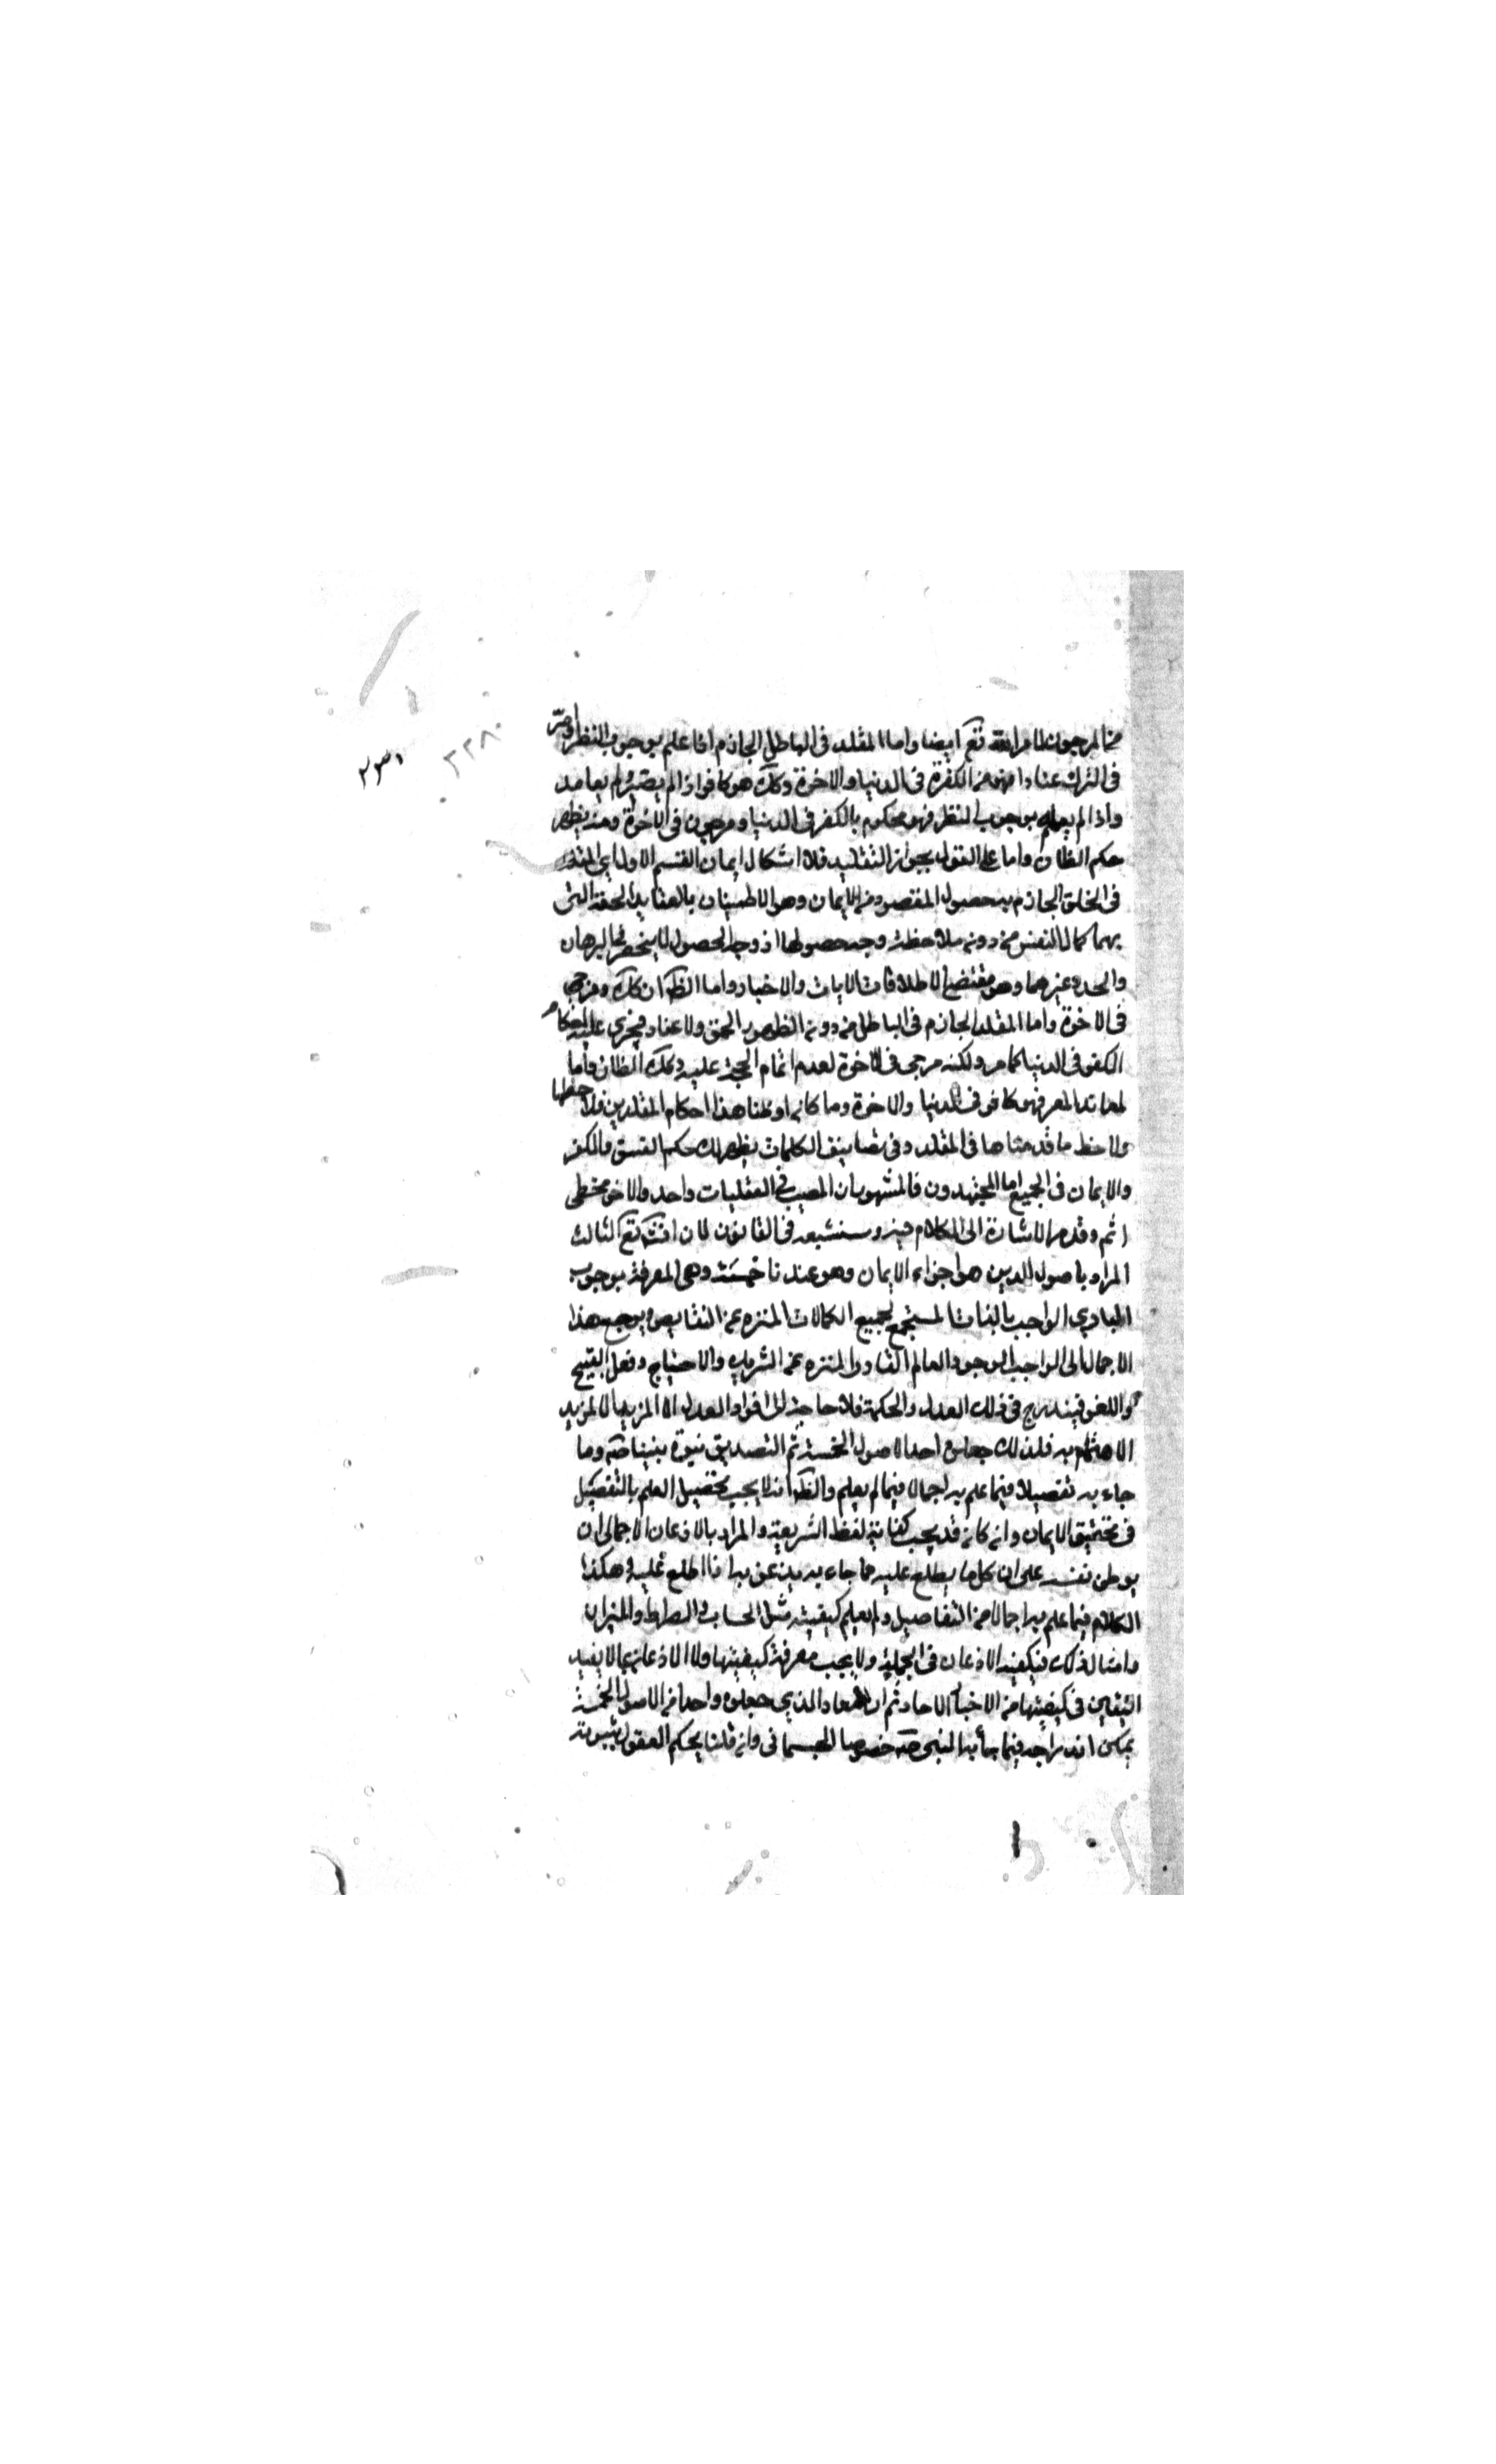 من المرجون لامر الله تع ايضا واما المقلد فى الباطل الجازم اذا علم بوجوب النظر واصرّ
فى الترك عنادا فهو من الكفرة فى الدنيا والاخرة وكك هو كافر اذا لم يصر ولم يعاند
واذا لم يعلم بوجوب النظر فهو محكوم بالكفر فى الدنيا ومرجون فى الاخرة ومنه يظهر
حكم الظان واما على القول بجواز التقليد فلا اشكال ايمان القسم الاول اى المقلد
فى الحق الجازم به بحصول المقصود من الايمان وهو الاطمينان بالعقايد الحقة التى
بهما كمال النفس من دون ملاحظة وجه حصولها اذ وجه الحصول لا ينحصر فى البرهان
والحد وغيرهما وهو مقتضى الاطلاقات الايات والاخبار واما الظ ان كك ومرجى
فى الاخرة واما المقلد الجازم فى الباطل من دون الظهور الحق ولا عناد فيجرى عليه احكام
الكفر فى الدنيا كما مر ولكنه مرجى فى الاخرة لعدم اتمام الحجة عليه وكك الظان واما
لمعاند المعر فهو كافر فى الدنيا والاخرة وما كان او ظنا هذا احكام المقلدين فلاحظها
ولاحظ ما قدمناها فى المقلد وفى تضاعيف الكلمات يظهر لك حكم الفسق والكفر
والايمان فى الجميع اما المجتهدون فالمشهور ان المصيب فى العقليات واحد والاخر مخطى
اثم وقد مر الاشارة الى الكلام فيه وسنشبعه فى القانون لان انشا تع الثالث
المراد باصول الدين هو اجزاء الايمان وهو عندنا خمسة وهى المعرفة بوجوب
البارى الواجب بالذات المستجمع لجميع الكمالات المنزه عن النقايص ويرجع هذا
الاجمال الى الواجب الوجود العالم القادر المنزه عن الشريك والاحتياج وفعل القبيح
واللغو فيندرج فى ذلك العدل والحكمة فلا حاجة الى افراد العدل الا المزيد لمزيد
الاهتمام به فلذلك جعلوه احد الاصول الخمسة ثم التصديق بنبوة نبينا صه وما
جاء به تفصيلا فيما علم به اجمالا فيما لم يعلم والظ انه لا يجب تحصيل العلم بالتفصيل
فى تحقيق الايمان وان كان قد يجب كفاية لحفظ الشريعة والمراد بالاذعان الاجمالى ان
يوطن نفسه على ان كل ما يطلع عليه مما جاء به يذعن به اذا اطلع عليه وهكذا
الكلام فيما علم به اجمالا من التفاصيل ولم يعلم كيفيته مثل الحساب والصراط والميزان
وامثال ذلك فيكفيه الاذعان فى الجملة ولا يجب معرفة كيفيتها ولا الاذعان بما لا يفيد
اليقين فى كيفيتها من الاخبار الاحاد ثم ان المعاد الذى جعلوه واحدا من الاصول الخمسة
يمكن اندراجه فيما جاء به النبى صه خصوصا الجسمانى وان قلنا بحكم العقول بثبوته
٢٣٠
٢٢٨